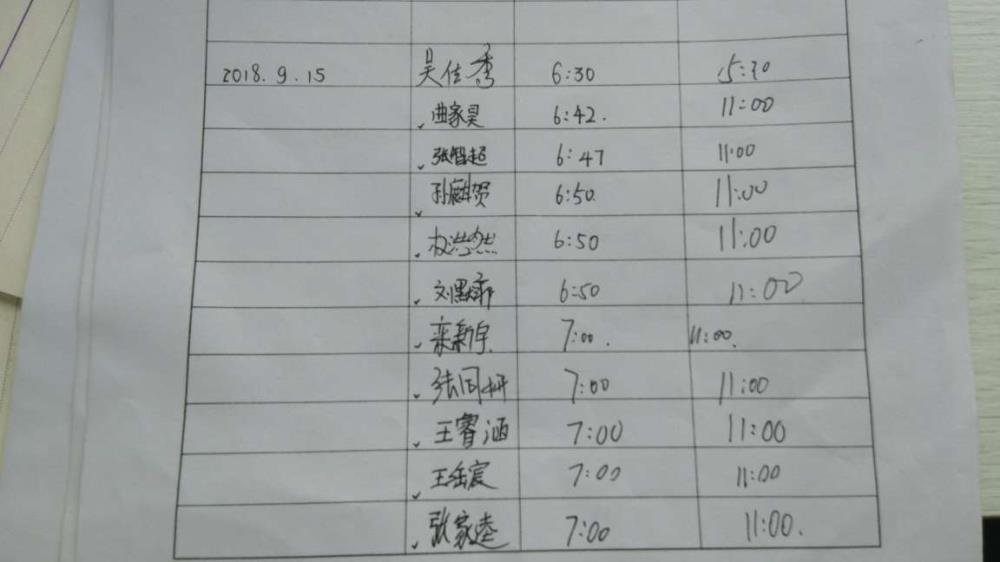 2018.9.15 吴佳秀 6:30 5:30
曲家昊 6:42. 11:00
张智超 6:47 11:00
孙麒贺 6:50. 11:00
权浩然 6:50 11:00
刘 6:50 11:00
栾新宇 7:00. 11:00.
张同 7:00 11:00
王睿涵 7:00 11:00
王岳宸 7:00 11:00
张家 7:00 11:00.